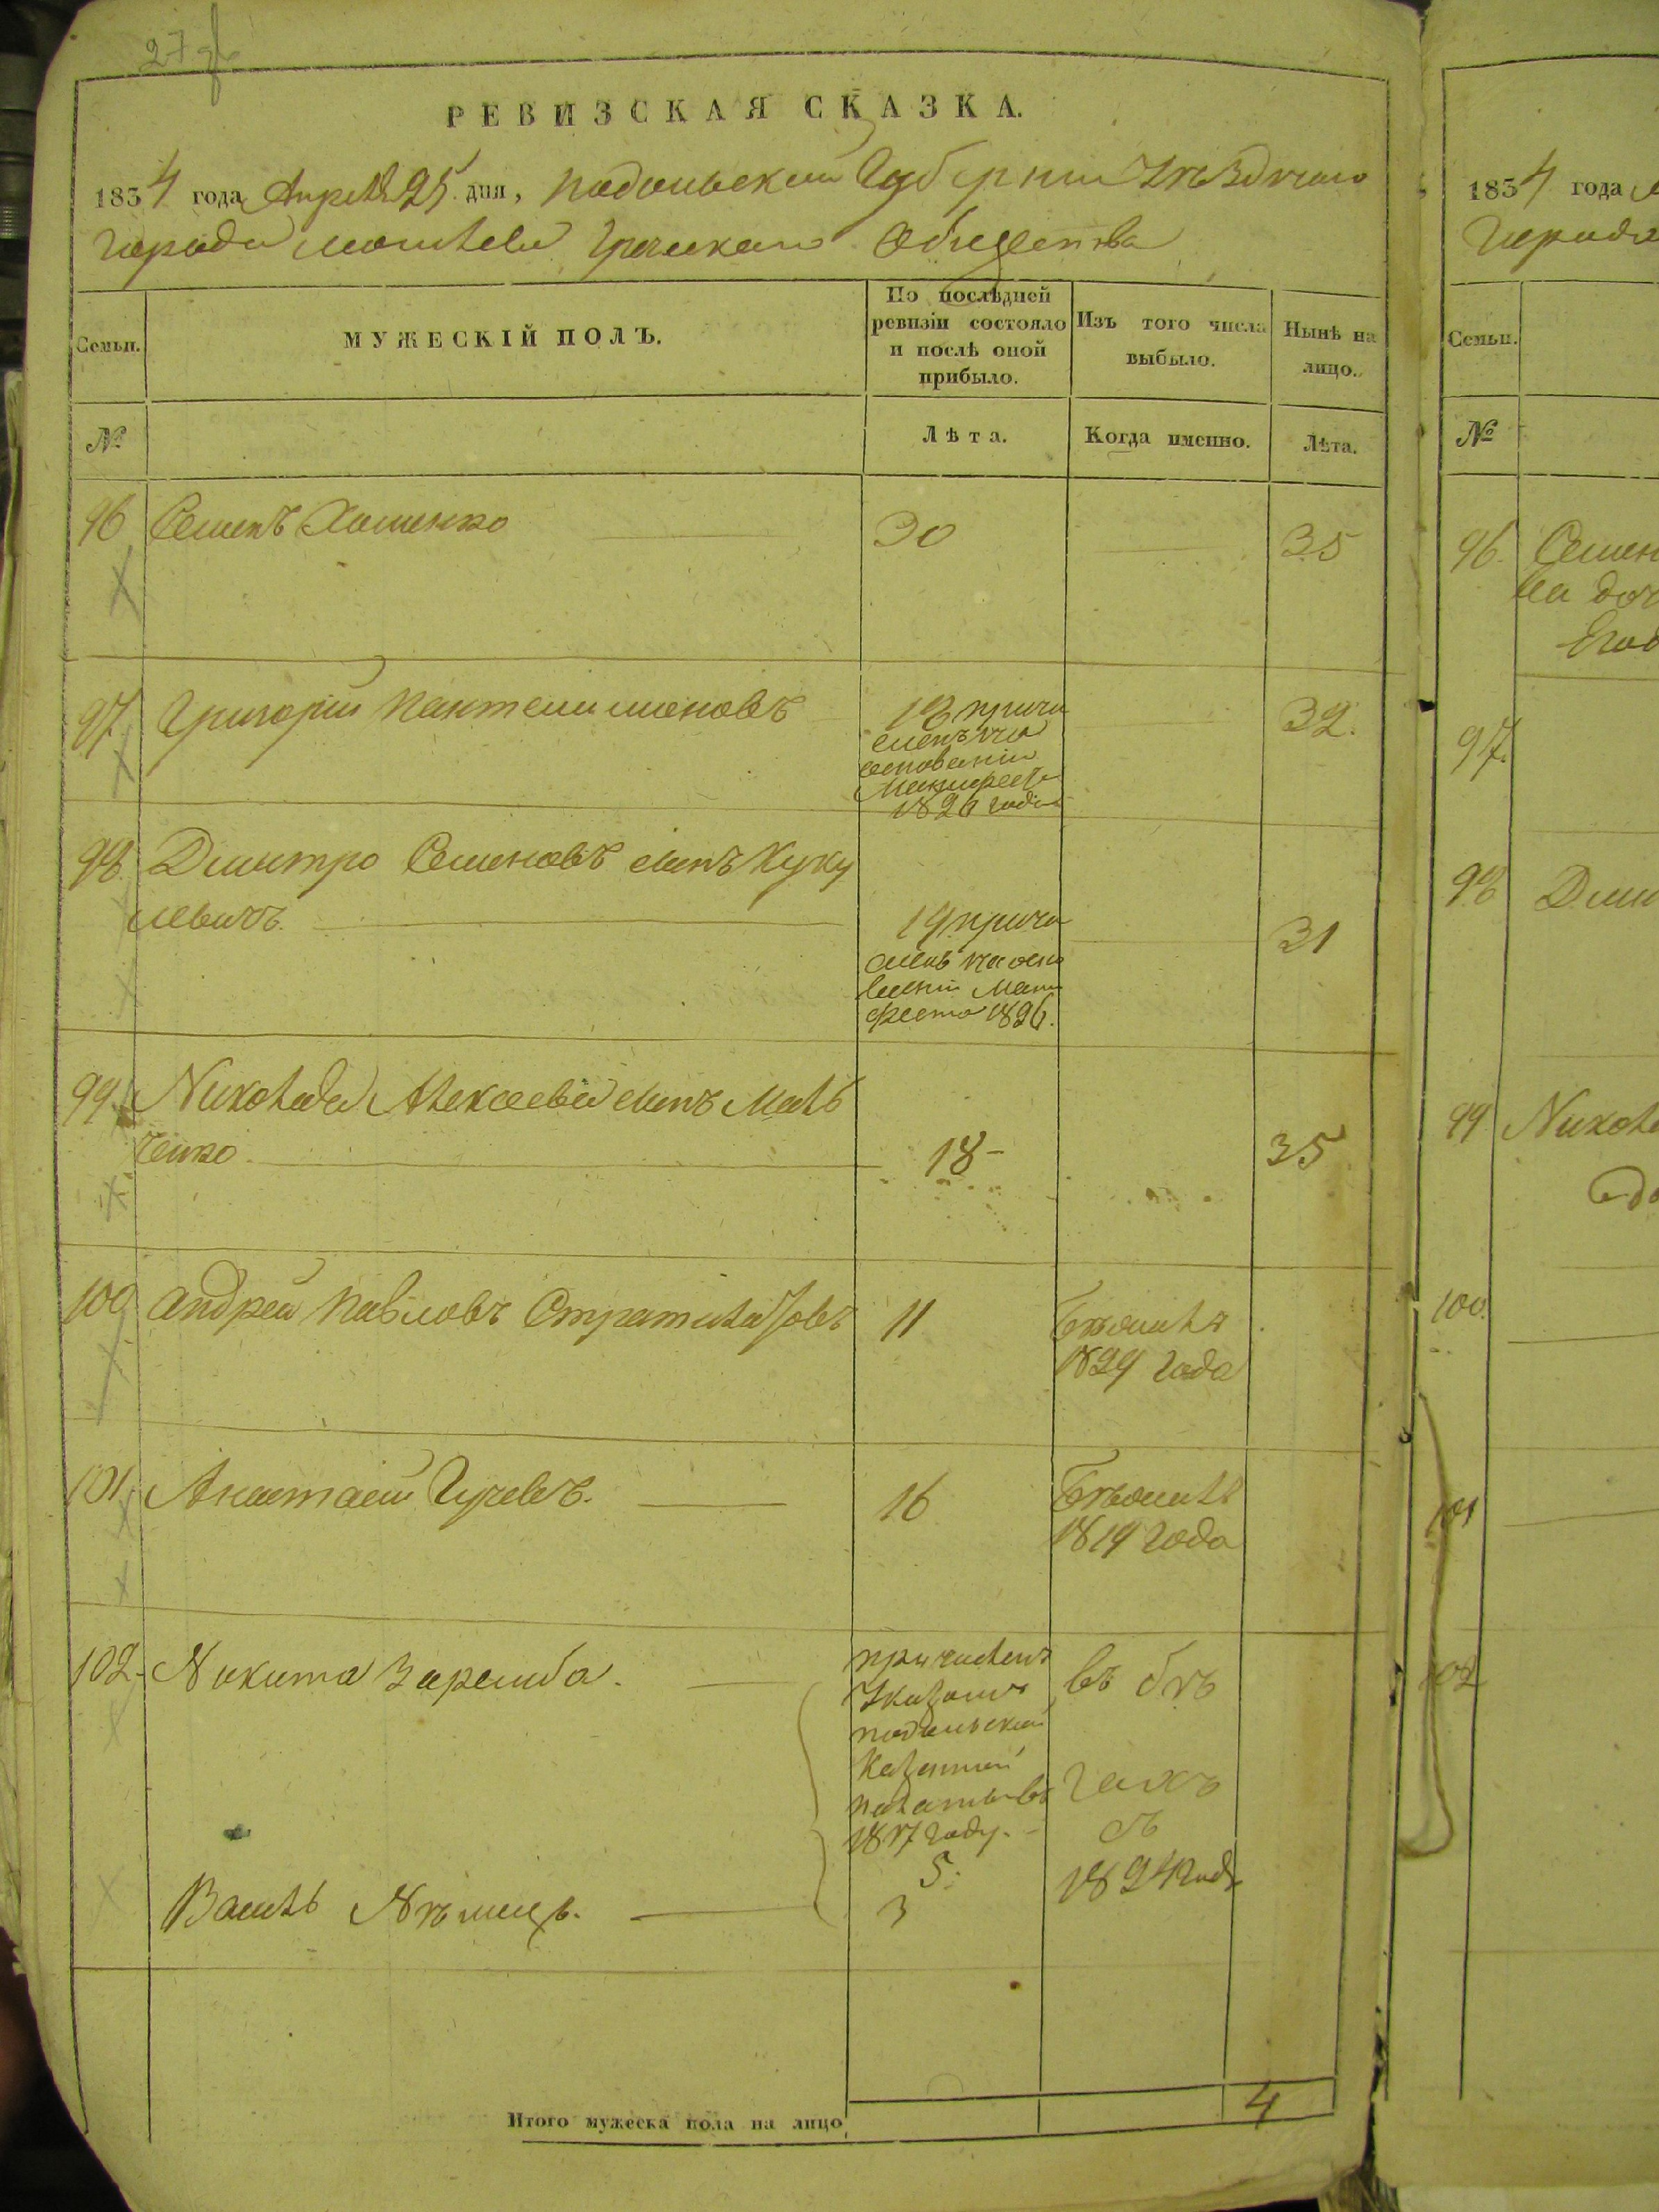 27
РЕВИЗСКАЯ СКАЗКА.
1834 года Апреля 25 дня, Подольской Губернии Уѣзднаго
города Могилева Греческаго Общества
Семьи.
МУЖЕСКІЙ ПОЛЪ.
По послѣдней
ревизіи состояло
и послѣ оной
прибыло.
Изъ того числа
выбыло.
Нынѣ на
лицо.
№
Лѣта.
Когда именно.
Лѣта.
96 Семенъ Хоменко 30 35
97 Григорій Пантелимоновъ 18 причи 32.
сленъ на
основаніи
Манифеста
1826 года
98. Дмитро Семеновъ сынъ Куку
левичъ. 19 причи 31
сленъ на осно
ваніи Мани
феста 1826.
99. Николай Алексеевъ сынъ Маль
ченко 18 - 35
100 Андрей Павловъ 11 Бѣжалъ
1829 года
101. Анастасій 16 Бѣжалъ
1819 года
102. Никита Заремба. причисленъ въ бѣ
Указомъ
подольской
Казенной
палаты въ гахъ
1817 году. - съ
5. 1824 года
Василь Нѣмецъ. 3
Итого мужеска пола на лицо 4
1834 года
Города
Семьи.
№
96. Семен
97.
98 Дми
99 Никола
100.
101
102